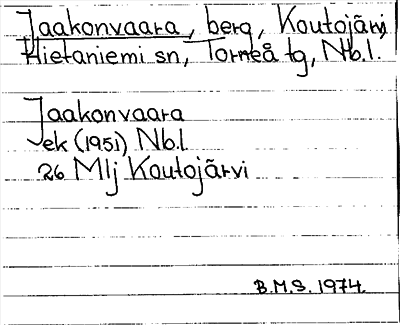 Jaakonvaara, berg, Koutojärvi,
Hietaniemi sn, Torneå tg, Nb.l.
Jaakonvaara
ek (1951) Nb.l
26 Mlj Koutojärvi
B.M.S. 1974.